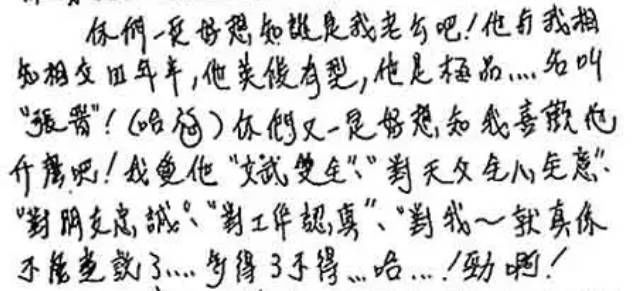 你們一定好想知誰是我老公吧!他與我相
知相交四年半,他英俊有型,他是極品....名叫
"張晋"!(哈哈)你們又一定好想知我喜歡他
什麼吧!我覺他"文武雙全"、"對天父全心全意"、
"對朋友忠誠"、"對工作認真"、"對我~就真係
不能盡說了....勁得了不得...哈...!勁啊!